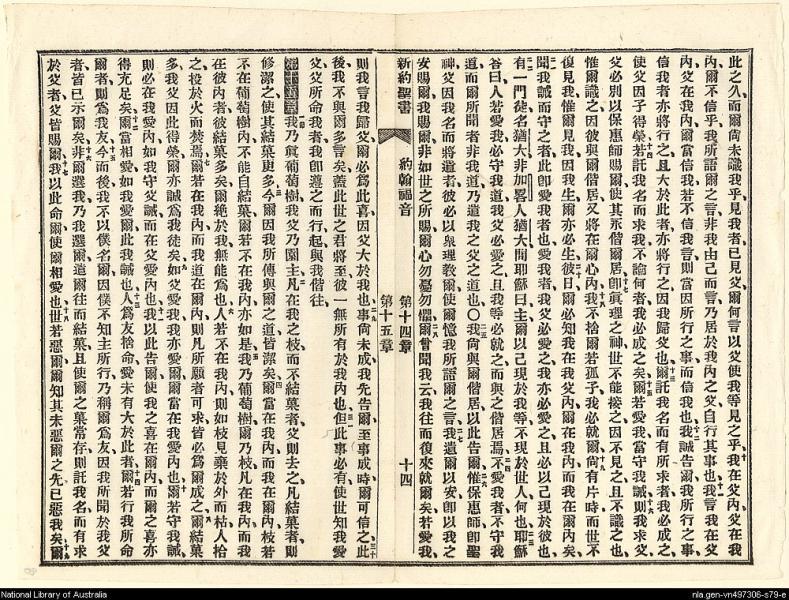 此之久而爾尚未識我乎見我者已見父爾何言以父使我等見之乎我在父內父在我
內爾不信乎我所語爾之言非我由己而言乃居於我內之父自行其事也我言我在父
內父在我內爾當信我若不信我言則當因所行之事而信我也我誠告爾我所行之事
信我者亦將行之且大於此者亦將行之因我歸父也爾託我名而有所求者我必成之
使父因子得榮若託我名而求我不論何者我必成之矣爾若愛我當守我誡我則求父
父必別以保惠師賜爾使其永偕爾居卽眞理之神世不能接之因不見之且不識之也
惟爾識之因彼與爾偕居又將在爾心內我不捨爾若孤子我必就爾尚有片時而世不
復見我惟爾見我因我生爾亦必生彼日爾必知我在父內爾在我內而我在爾內矣
聞我誡而守之者此卽愛我者也愛我者我父必愛之我亦必愛之且必以己現於彼也
有一門徒名猶大非加畧人猶大問耶穌曰主爾以己現於我等不現於世人何也耶穌
答曰人若愛我必守我道我父必愛之且我等必就之而與之偕居焉不愛我者不守我
道而爾所聞者非我道乃遣我之父之道也〇我尚與爾偕居以此告爾惟保惠師卽聖
神父因我名而將遣者彼必以衆理敎爾使爾憶我所語爾之言我遺爾以安卽以我之
安賜我賜爾非如世之所賜爾心勿憂勿懼爾曾聞我云我往而復來就爾矣若愛我
新約聖書 約翰福音 第十四章 第十五章 十四
則我言我歸父爾必爲此喜因父大於我也事尚未成我先告爾至事成時爾可信之此
後我不與爾多言矣蓋此世之君將至彼一無所有於我內也但此事必有使世知我愛
父父所命我者我卽遵之而行起與我偕往
第十五章我乃眞葡萄樹我父乃園主凡在我之枝而不結菓者父則去之凡結菓者則
修潔之使其結菓更多今爾因我所傳與爾之道皆潔矣爾當在我內而我在爾內枝若
不在葡萄樹內不能自結菓爾若不在我內亦如是我乃葡萄樹爾乃枝凡在我內而我
在彼內者彼結菓多矣爾絕於我無能爲也人若不在我內則如枝見棄於外而枯人拾
之投於火而焚焉爾若在我內而我道在爾內則凡所願者可求皆必爲爾成之爾結菓
多我父因此得榮爾亦誠爲我徒矣如父愛我我亦愛爾爾當在我愛內也爾若守我誡
則必在我愛內如我守父誡而在父愛內也我以此告爾使我之喜在爾內而爾之喜亦
得充足矣爾當相愛如我愛爾此我誡也人爲友捨命愛未有大於此者爾若行我所命
爾者則爲我友今而後我不以僕名爾因僕不知主所行乃稱爾爲友因我所聞於我父
者皆已示爾矣非爾選我乃我選爾遣爾往而結菓且使爾之菓常存則託我名而有求
於父者父皆賜爾我以此命爾使爾相愛也世若惡爾爾知其未惡爾之先已惡我矣爾
National Library of Australia
nla.gen-vn497306-s79-e